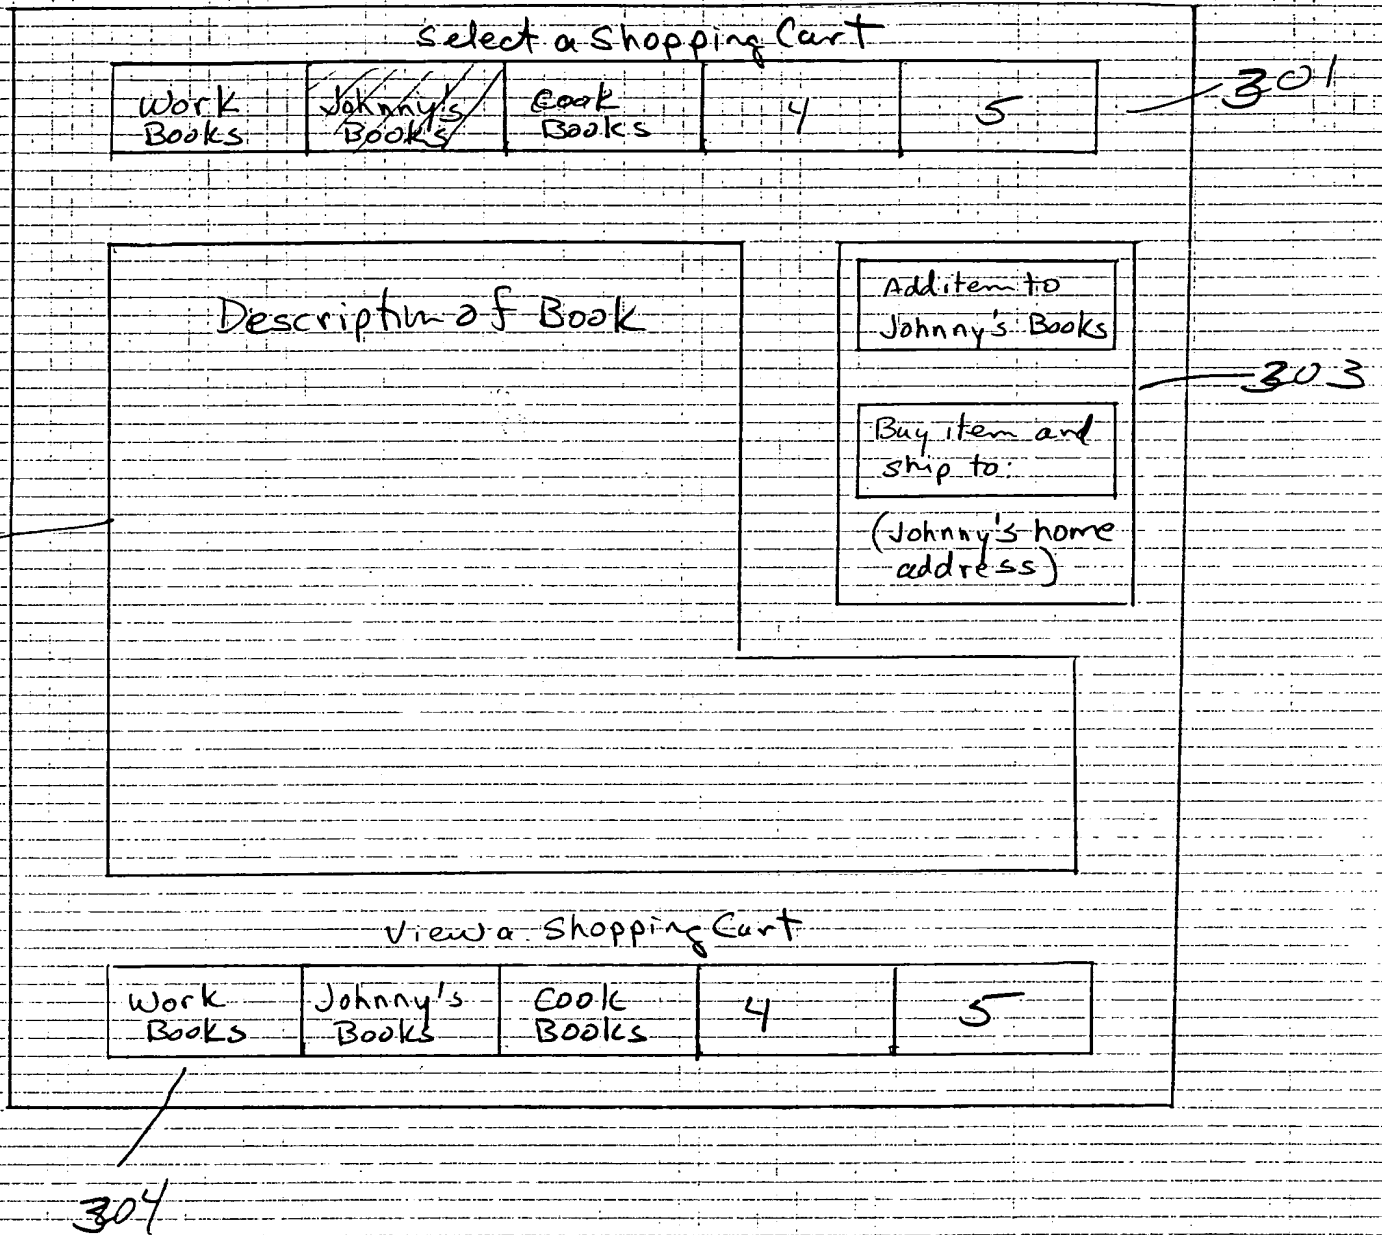 Select a Shopping Cart
Work Books
Johnny's Books
Cook Books
4
5
301
Description of Book
Add item to
Johnny's Books
303
Buy item and
ship to:
(Johnny's home
address)
View a Shopping Cart
Work Books
Johnny's Books
Cook Books
4
5
304